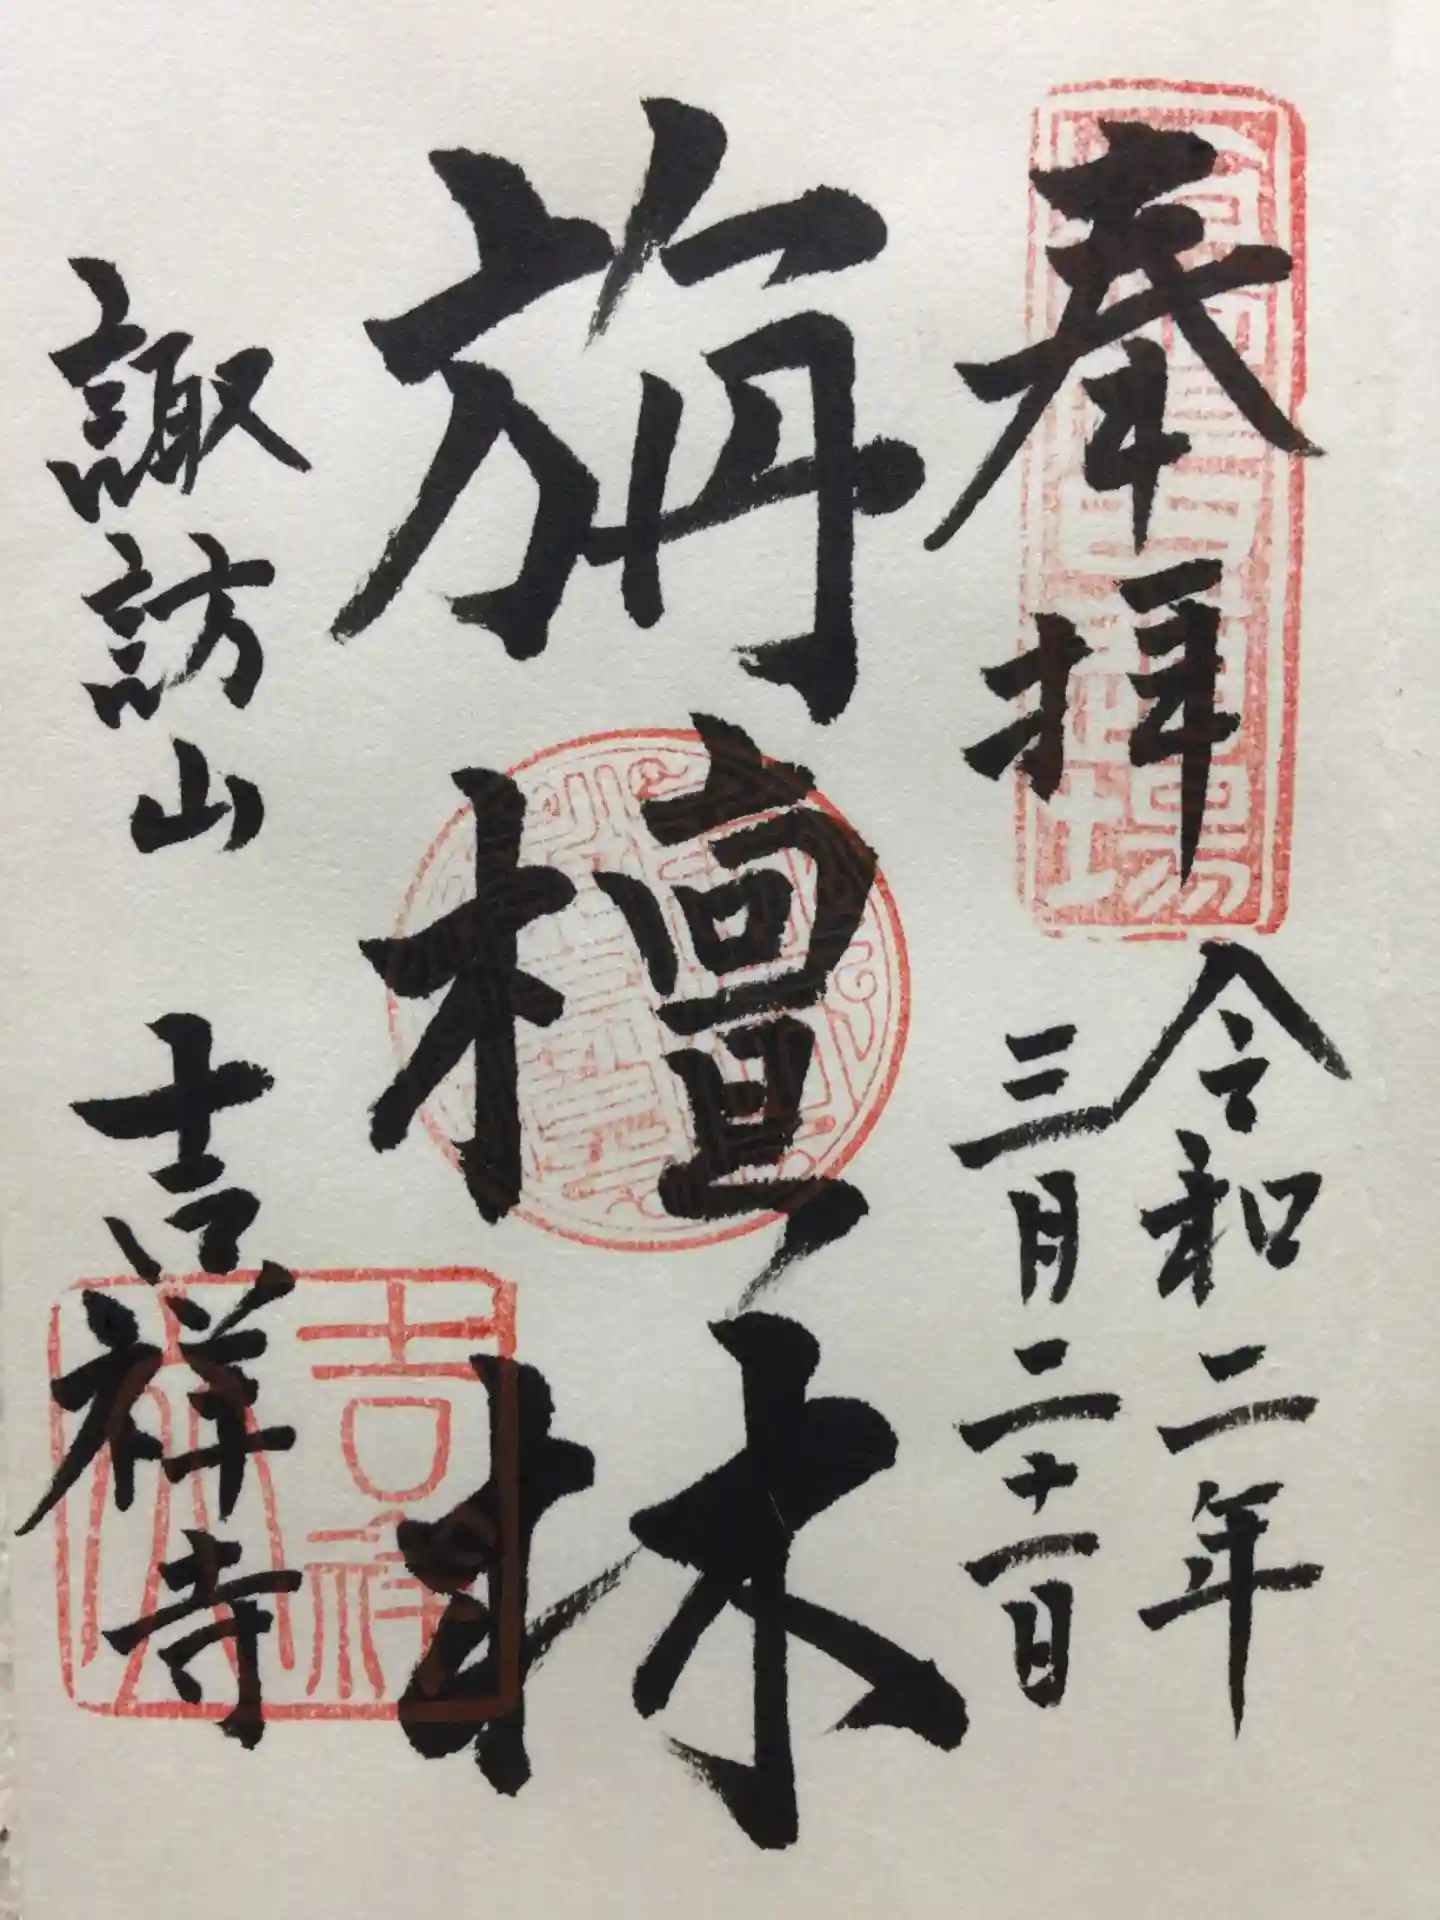 奉拝
令和二年
三月二十二日
旃檀林
諏訪山 吉祥寺
吉祥